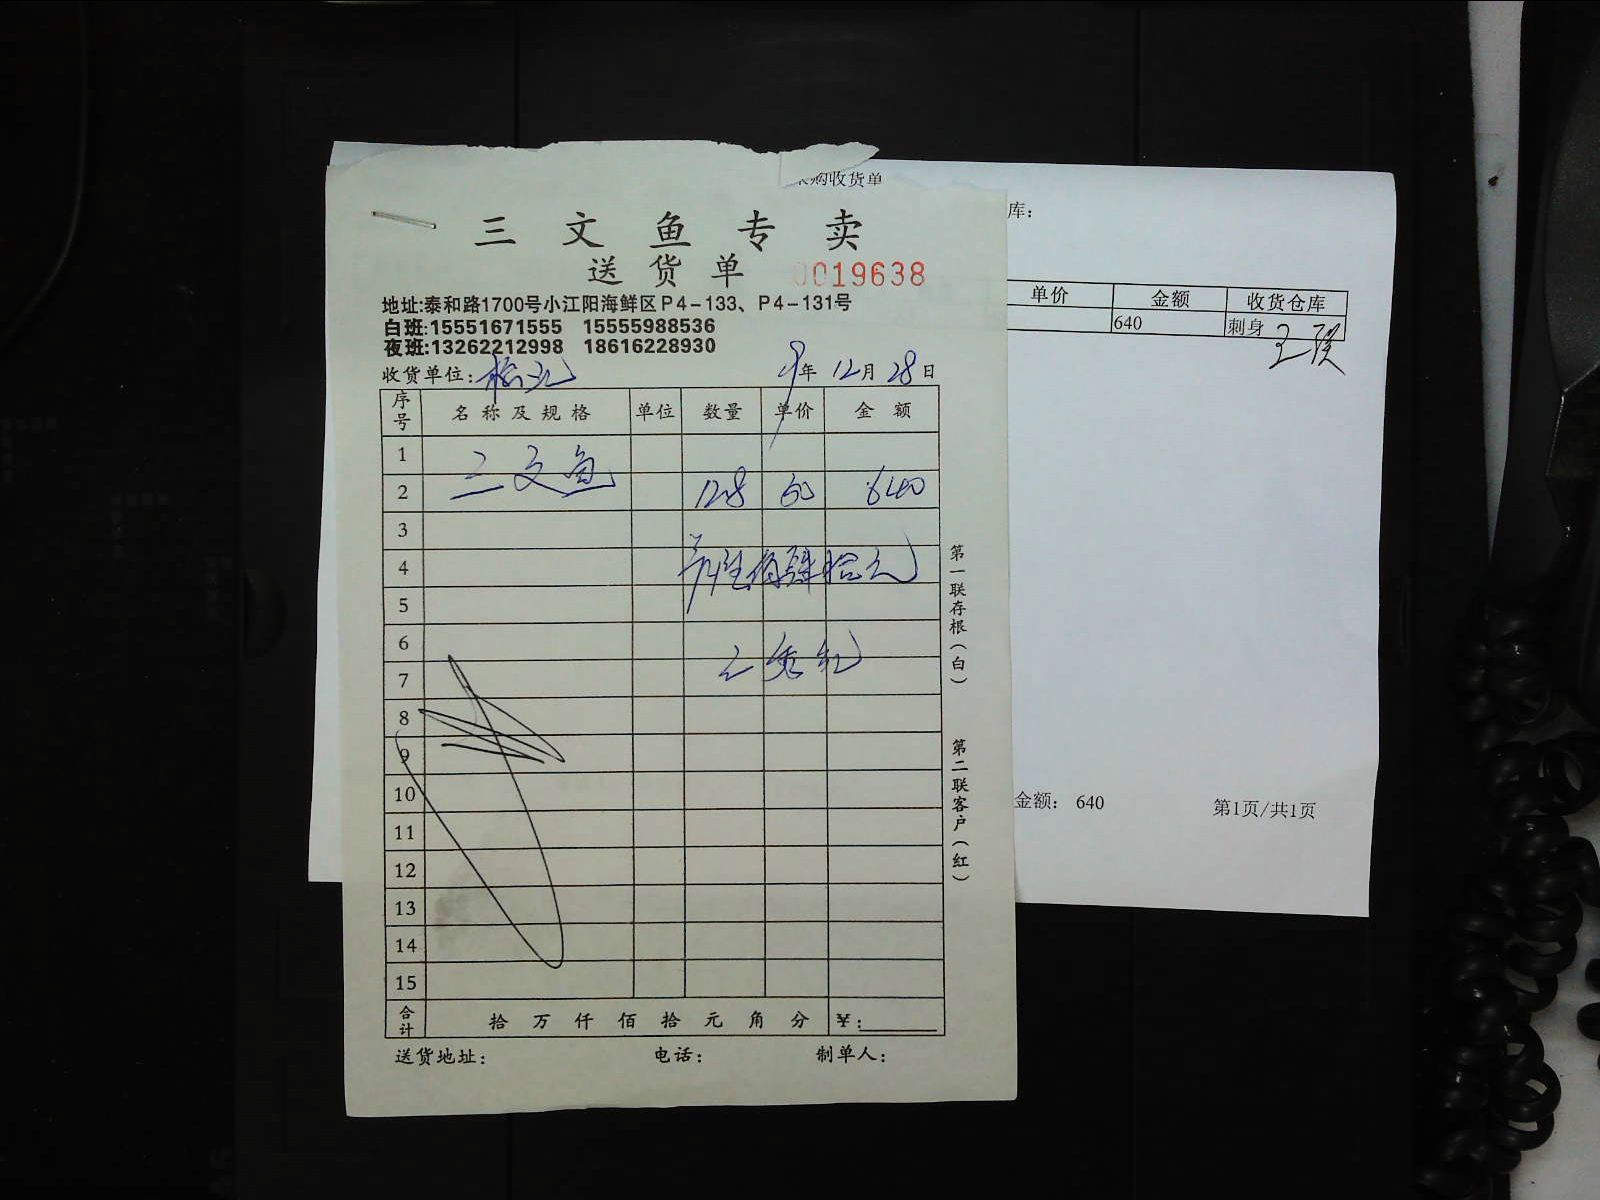 三文鱼专卖
送货单 0019638
地址:泰和路1700号小江阳海鲜区P4-133、P4-131号
白班:15551671555 15555988536
夜班:13262212998 18616228930
收货单位: 年 12月 28日
序号 名称及规格 单位 数量 单价 金额
1 三文鱼
2 12.8 50 640
3
4 陆佰肆拾元
5
6
7
8
9
10
11
12
13
14
15
合计 拾 万 仟 佰 拾 元 角 分 ¥:
送货地址: 电话: 制单人:
第一联存根(白)
第二联客户(红)
购收货单
库:
单价 金额 收货仓库
640 刺身
金额: 640 第1页/共1页